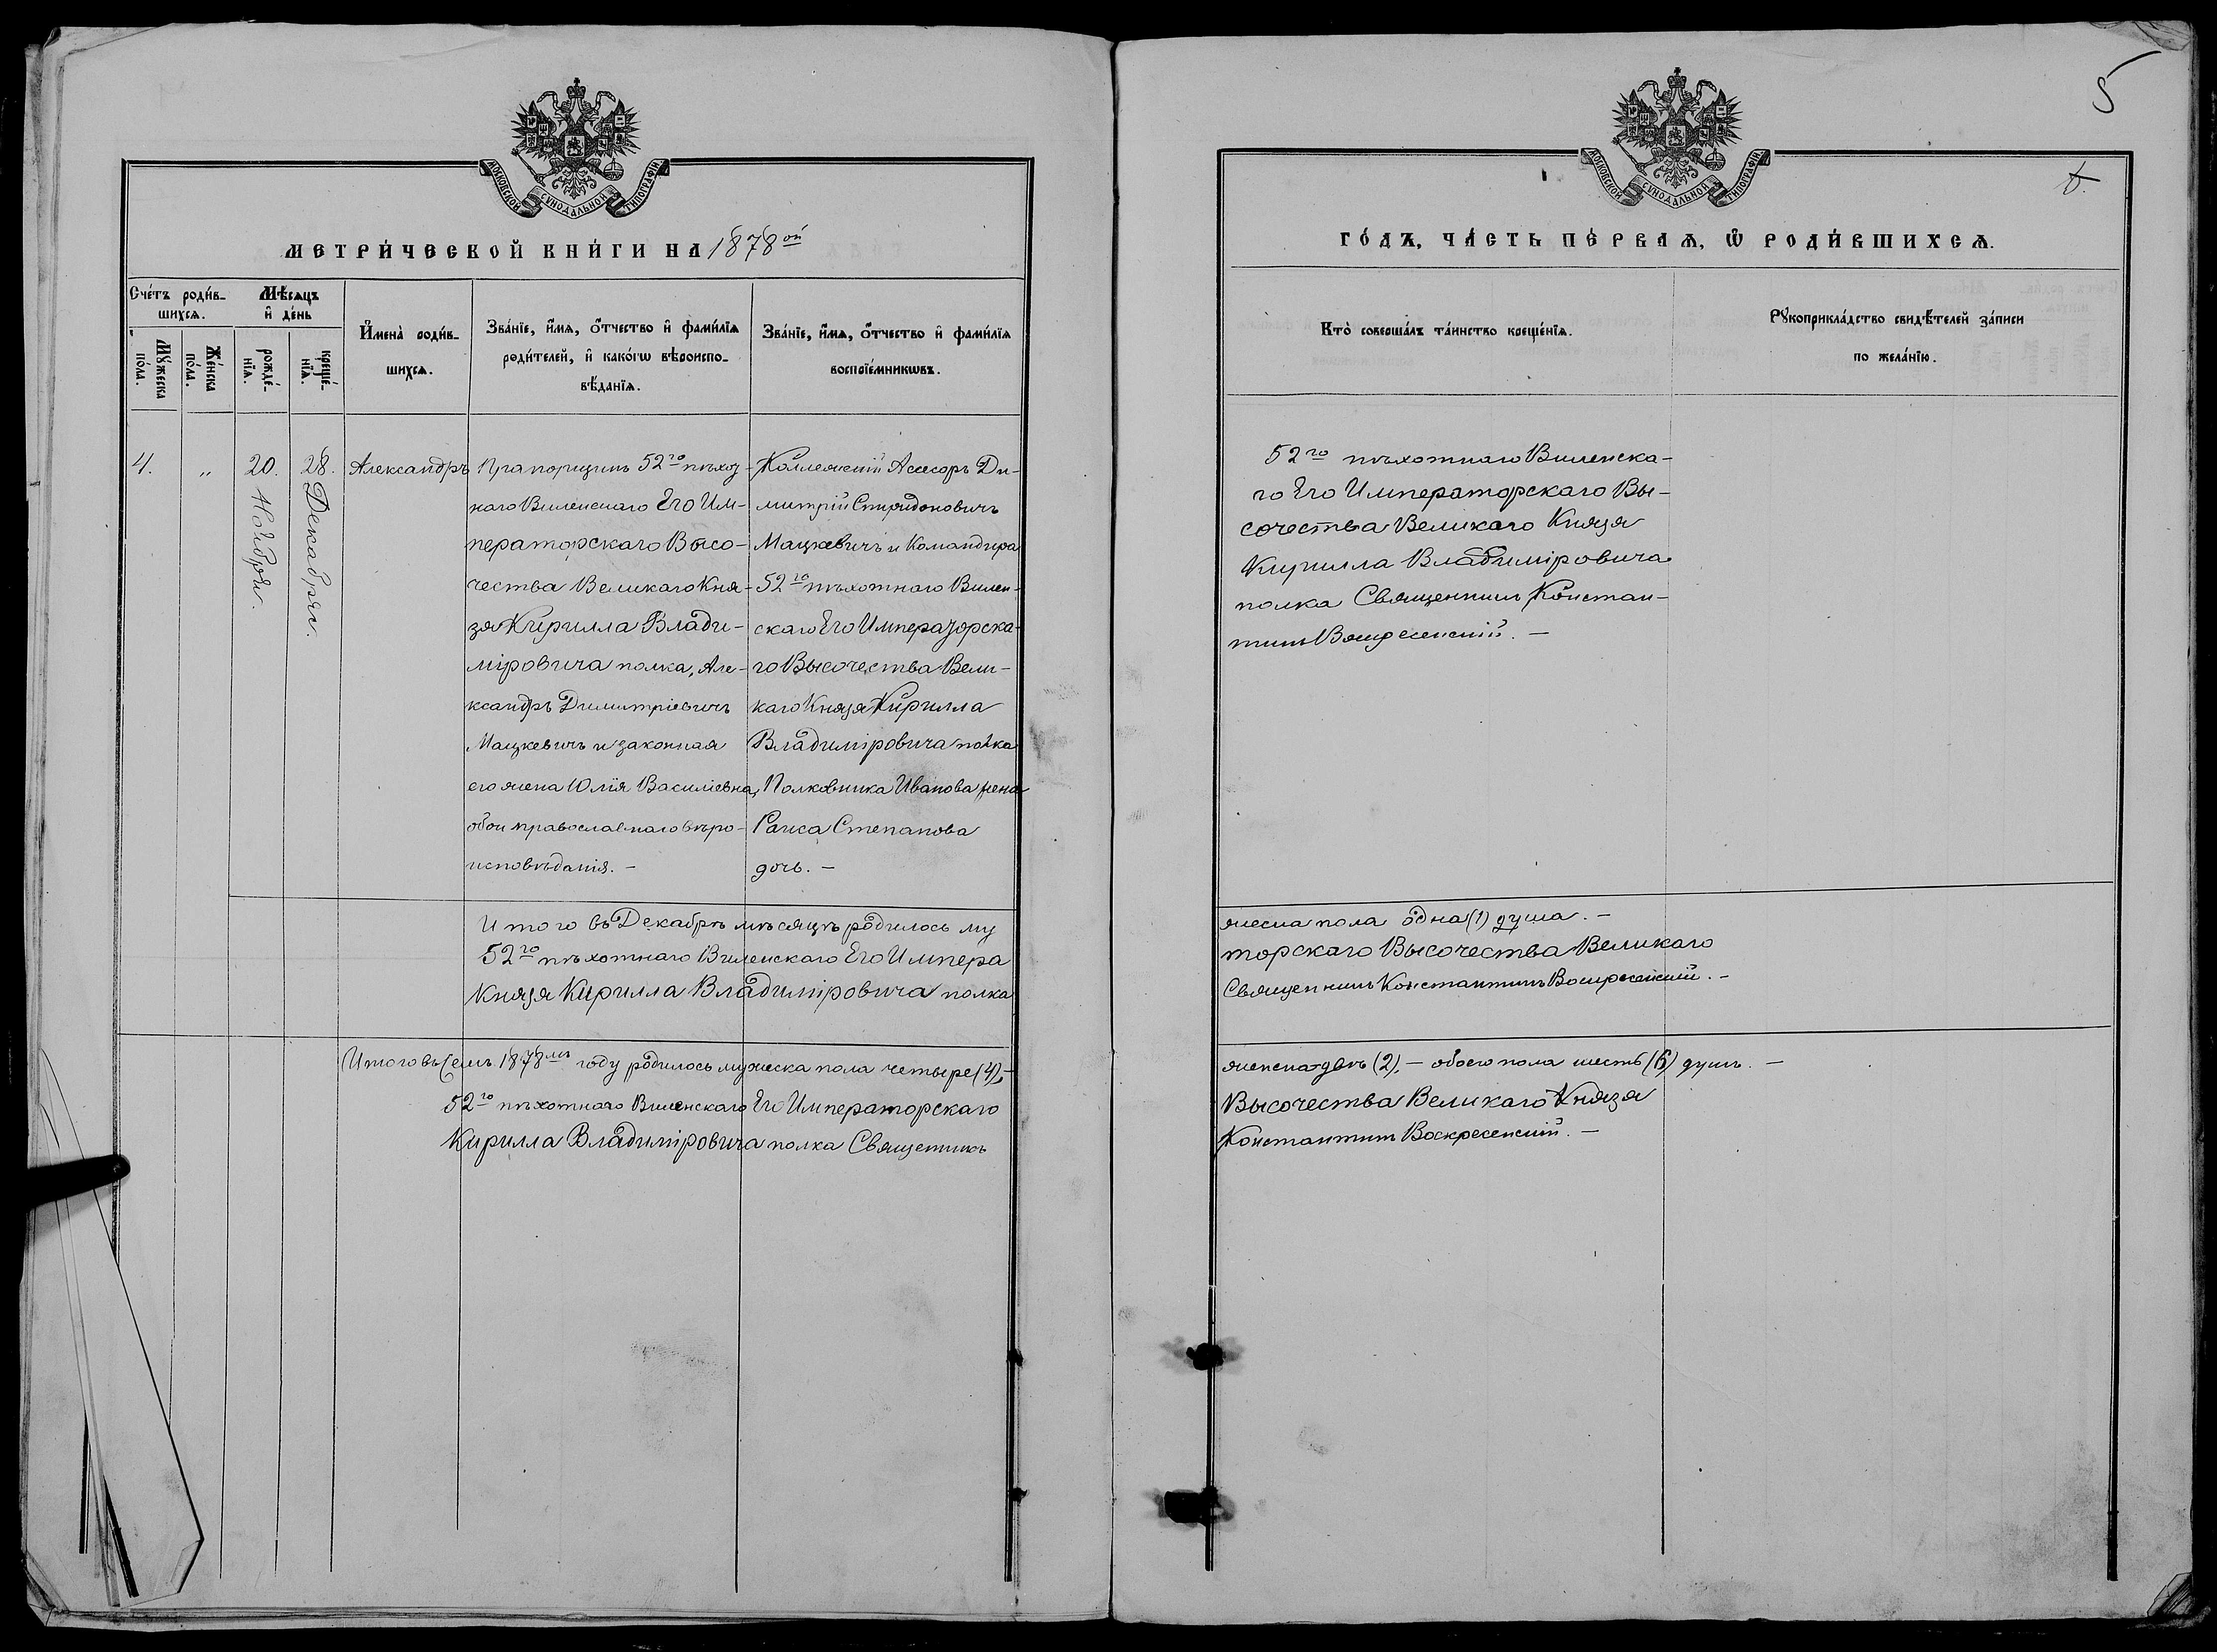 МОСКОВСКОЙ СѴНОДАЛЬНОЙ ТИПОГРАФІИ
МЕТРИ́ЧЕСКОЙ КНИ́ГИ НА 1878ой
Сче́тъ роди́в-
шихсѧ.
Мѣ́сѧцъ
и҆ де́нь
Мꙋ́жеска
по́ла.
Же́нска
по́ла.
рожде́-
нїѧ.
креще́-
нїѧ.
И҆мена̀ роди́в-
шихсѧ.
Зва́нїе, и҆́мѧ, ѻ҆́тчество и҆ фами́лїѧ
роди́телей, и҆ како́гѡ вѣроиспо-
вѣ́данїѧ.
Зва́нїе, и҆́мѧ, ѻ҆́тчество и҆ фами́лїѧ
воспрїе́мникѡвъ.
4.
„
20.
Ноября.
28.
Декабря.
Александръ
Прапорщикъ 52го пѣхот-
наго Виленскаго Его Им-
ператорскаго Высо-
чества Великаго Кня-
зя Кирилла Влади-
міровича полка, Але-
ксандръ Димитріевичъ
Мацкевичъ и законная
его жена Юлія Василіевна,
обои православнаго вѣро-
исповѣданія. —
Коллежскій Асесоръ Ди-
митрій Спиридоновичъ
Мацкевичъ и Командира
52го пѣхотнаго Вилен-
скаго Его Императорска-
го Высочества Вели-
каго Князя Кирилла
Владиміровича полка
Полковника Иванова жена
Степанова
дочь. —
Итого въ Декабрѣ мѣсяцѣ родилось му
52го пѣхотнаго Виленскаго Его Импера
Князя Кирилла Владиміровича полка
Итого въ семъ 1878мъ году родилось мужеска пола четыре (4),—
52го пѣхотнаго Виленскаго Его Императорскаго
Кирилла Владиміровича полка Священникъ
5
МОСКОВСКОЙ СѴНОДАЛЬНОЙ ТИПОГРАФІИ
ГО́ДЪ, ЧА́СТЬ ПЕ́РВАѦ, Ѿ РОДИ́ВШИХСѦ.
Кто̀ соверша́лъ та́инство креще́нїѧ.
Рꙋкоприкла́дство свидѣ́телей за́писи
по жела́нїю.
52го пѣхотнаго Виленска-
го Его Императорскаго Вы-
сочества Великаго Князя
Кирилла Владиміровича
полка Священникъ Констан-
тинъ Воскресенскій. —
жеска пола одна (1) душа. —
торскаго Высочества Великаго
Священникъ Константинъ Воскресенскій. —
женска двѣ (2), — обоего пола шесть (6) душъ. —
Высочества Великаго Князя
Константинъ Воскресенскій. —